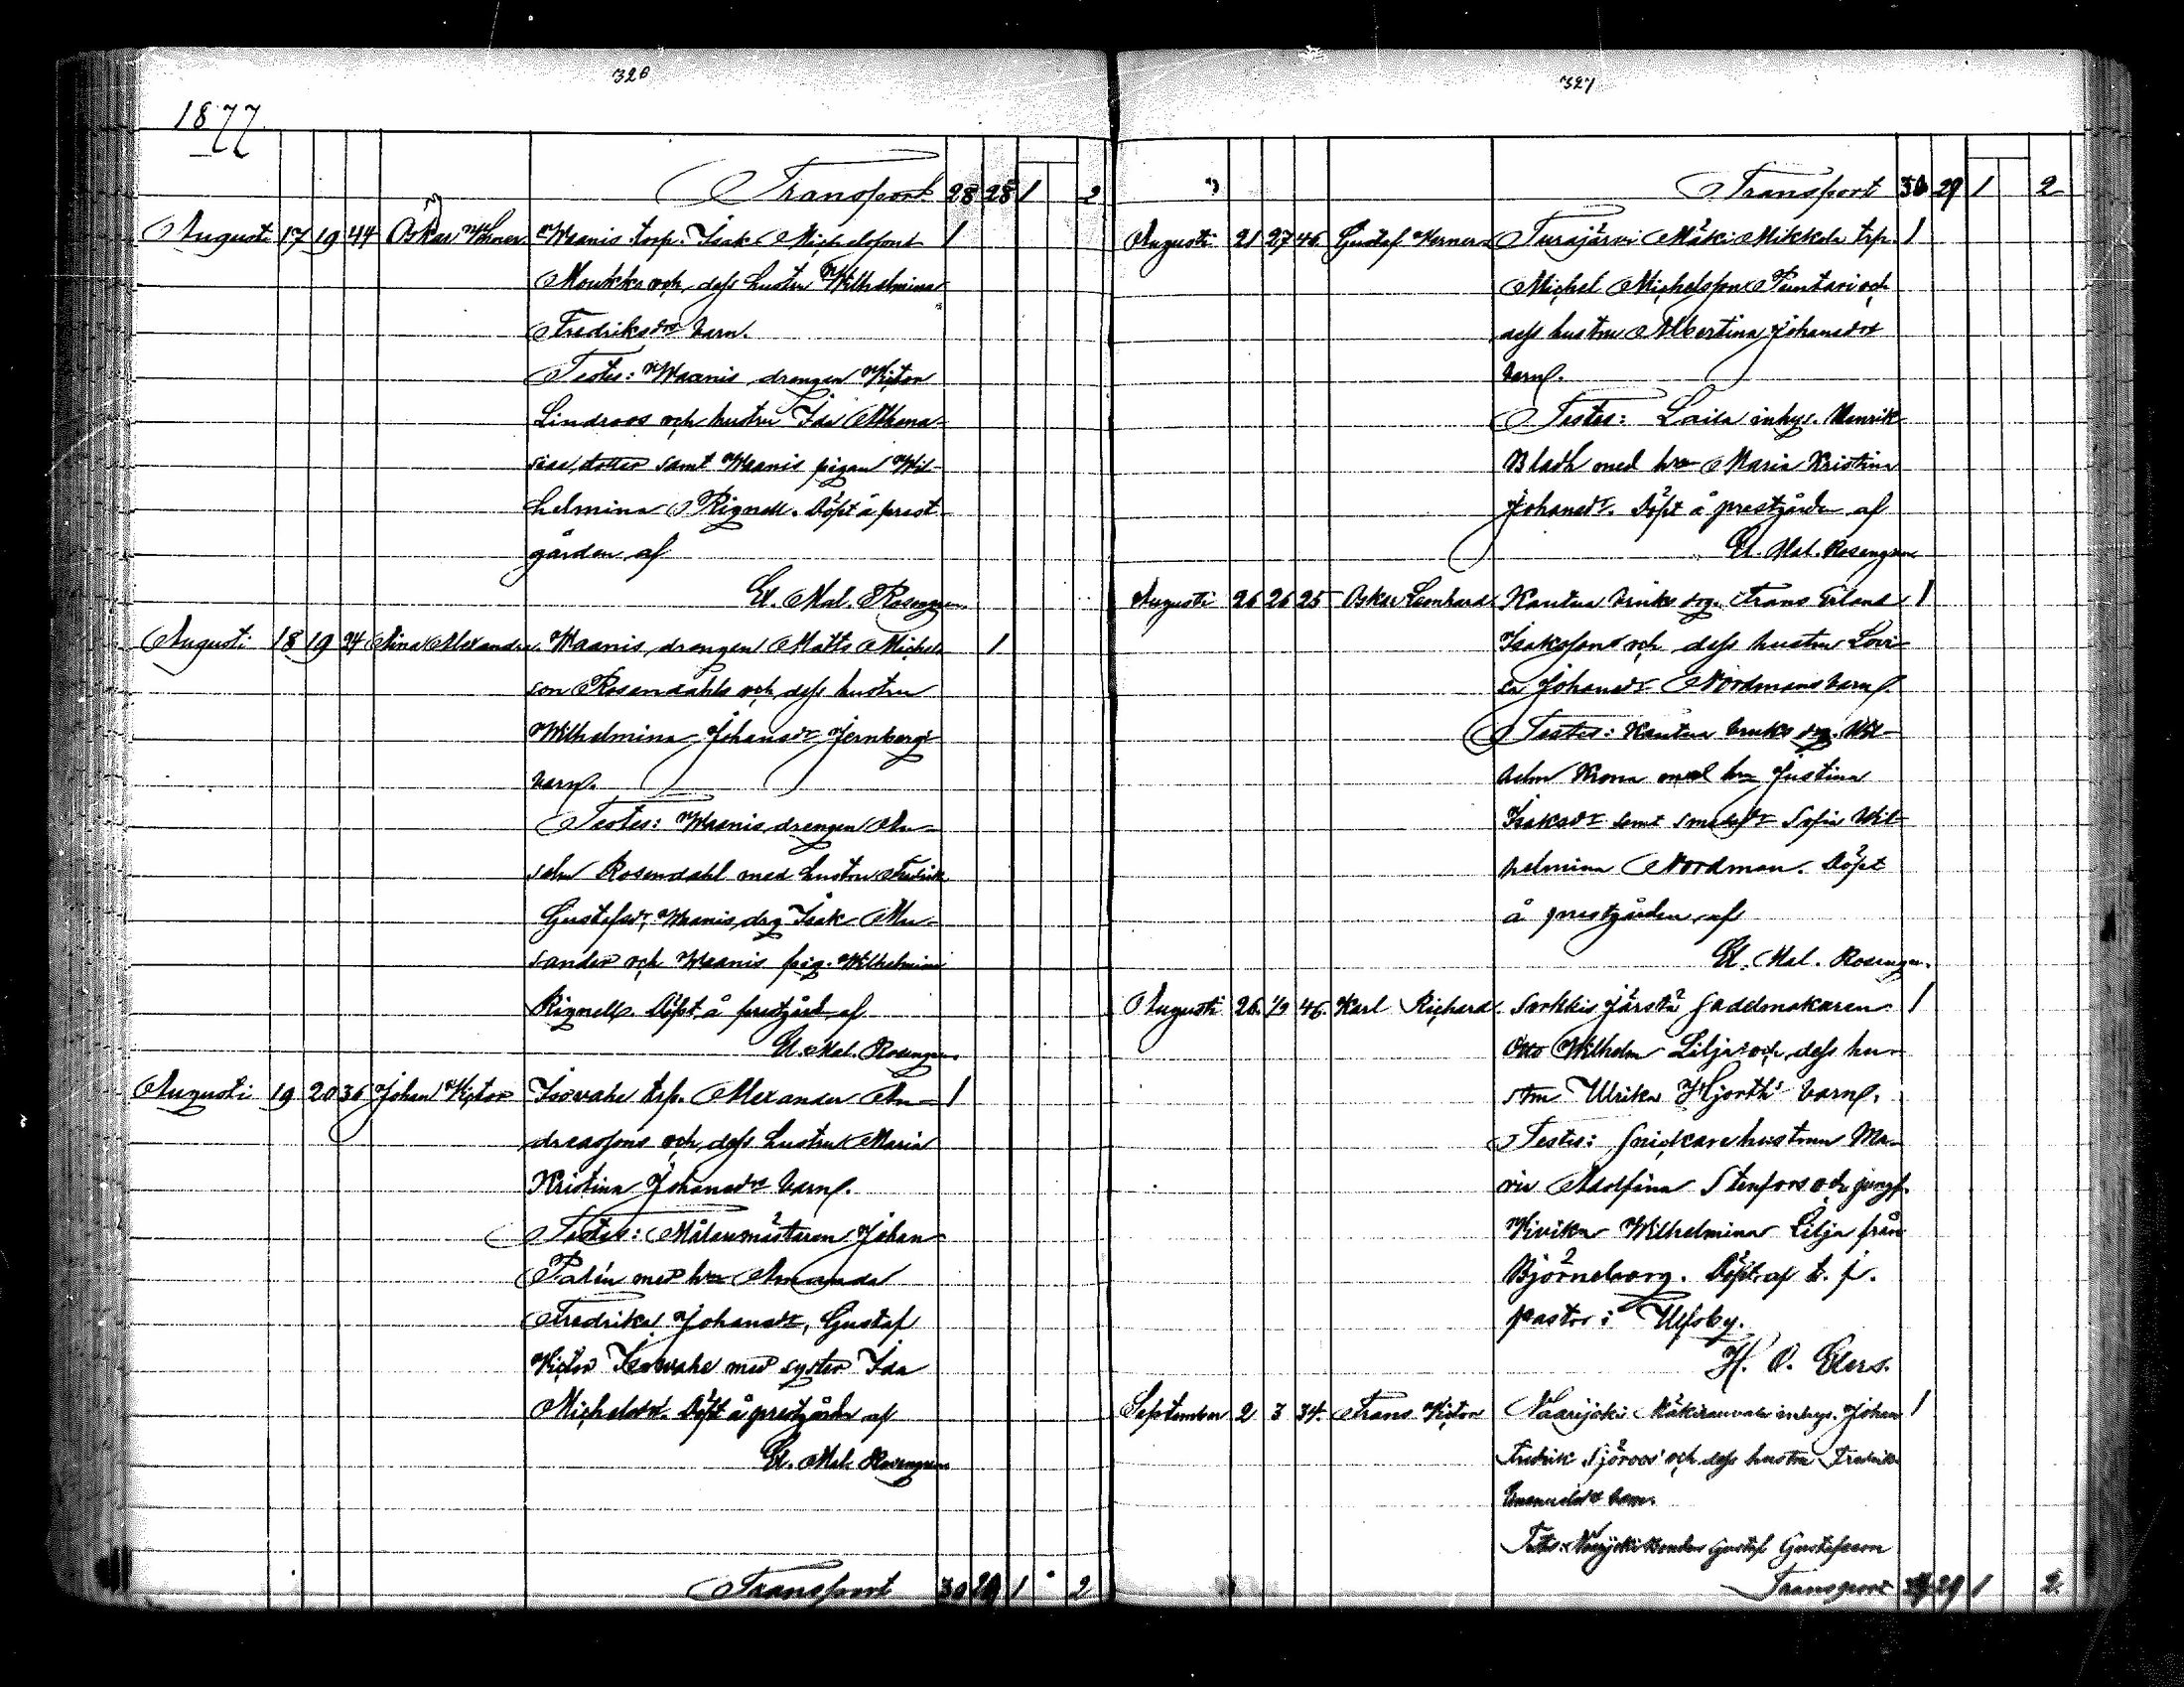 326
1877
Transport 28 28 1 2
Augusti 17 19 44 Oskar Werner Waanis torp. Isak Michelssons 1
Moukka och dess hustru Wilhelmina
Fredriksdrs barn.
Testes: Waanis drengen Victor
Lindroos och hustru Ida Athena-
siae dotter samt Waanis pigan Wil-
helmina Rignell. Döpt å prest-
gården af
El. Mal. Rosengren
Augusti 18 19 24 Aina Alexandra Waanis drengen Matts Michels- 1
son Rosendahls och dess hustru
Wilhelmina Johansdr Jernbergs
barn.
Testes: Waanis drengen An-
selm Rosendahl med hustru Fredrik
Gustafsdr, Waanis drg Isak
sander och Waanis pig. Wilhelmina
Rignell. Döpt å prestgård af
El. Mal. Rosengren
Augusti 19 20 36 Johan Victor Isovahe trp. Alexander An- 1
dreassons och dess hustru Maria
Kristina Johansdrs barn.
Testes: Målaremästaren Johan
Palén med hru Amanda
Fredrika Johansdr, Gustaf
Victor Isovahe med syster Ida
Michelsdr. Döpt å prestgården af
El. Mal. Rosengren
Transport 30 29 1 2
327
Transport 30 29 1 2
Augusti 21 27 46 Gustaf Verner Turajärvi Mäki Mikkola trp. 1
Michel Michelsson Puntari och
dess hustru Albertina Johansdrs
barn.
Testes: Laila inhys. Henrik
Bladh med hru Maria Kristina
Johansdr. Döpt å prestgården af
El. Mal. Rosengren
Augusti 26 26 25 Oskar Leonhard Kautua bruks drg. Frans Erland 1
Isakssons och dess hustru Lovi-
sa Johansdr Nordmans barn.
Testes: Kautua bruks drg. Wil-
helm Krona med hru Justina
Isaksdr samt smedsdr Sofia Wil-
helmina Nordman. Döpt
å prestgården af
El. Mal. Rosengren.
Augusti 26 1/9 46 Karl Richard Sorkkis Järstä sadelmakaren 1
Otto Wilhelm Liljas och dess hu-
stru Ulrika Hjorths barn.
Testes: snickarehustrun Ma-
ria Adolfina Stenfors och jungf.
Wilhelmina Lilja från
Björneborg. Döpt af t. f.
pastor i Ulfsby.
H. O. Elers.
September 2 3 34 Frans Victor Naarijoki inhys. Johan 1
Fredrik Sjöroos' och dess hustru Fredrika
Emanuelsdr barn.
Testes: Naarijoki Bonden Gustaf Gustafsson
Transport 29 1 2